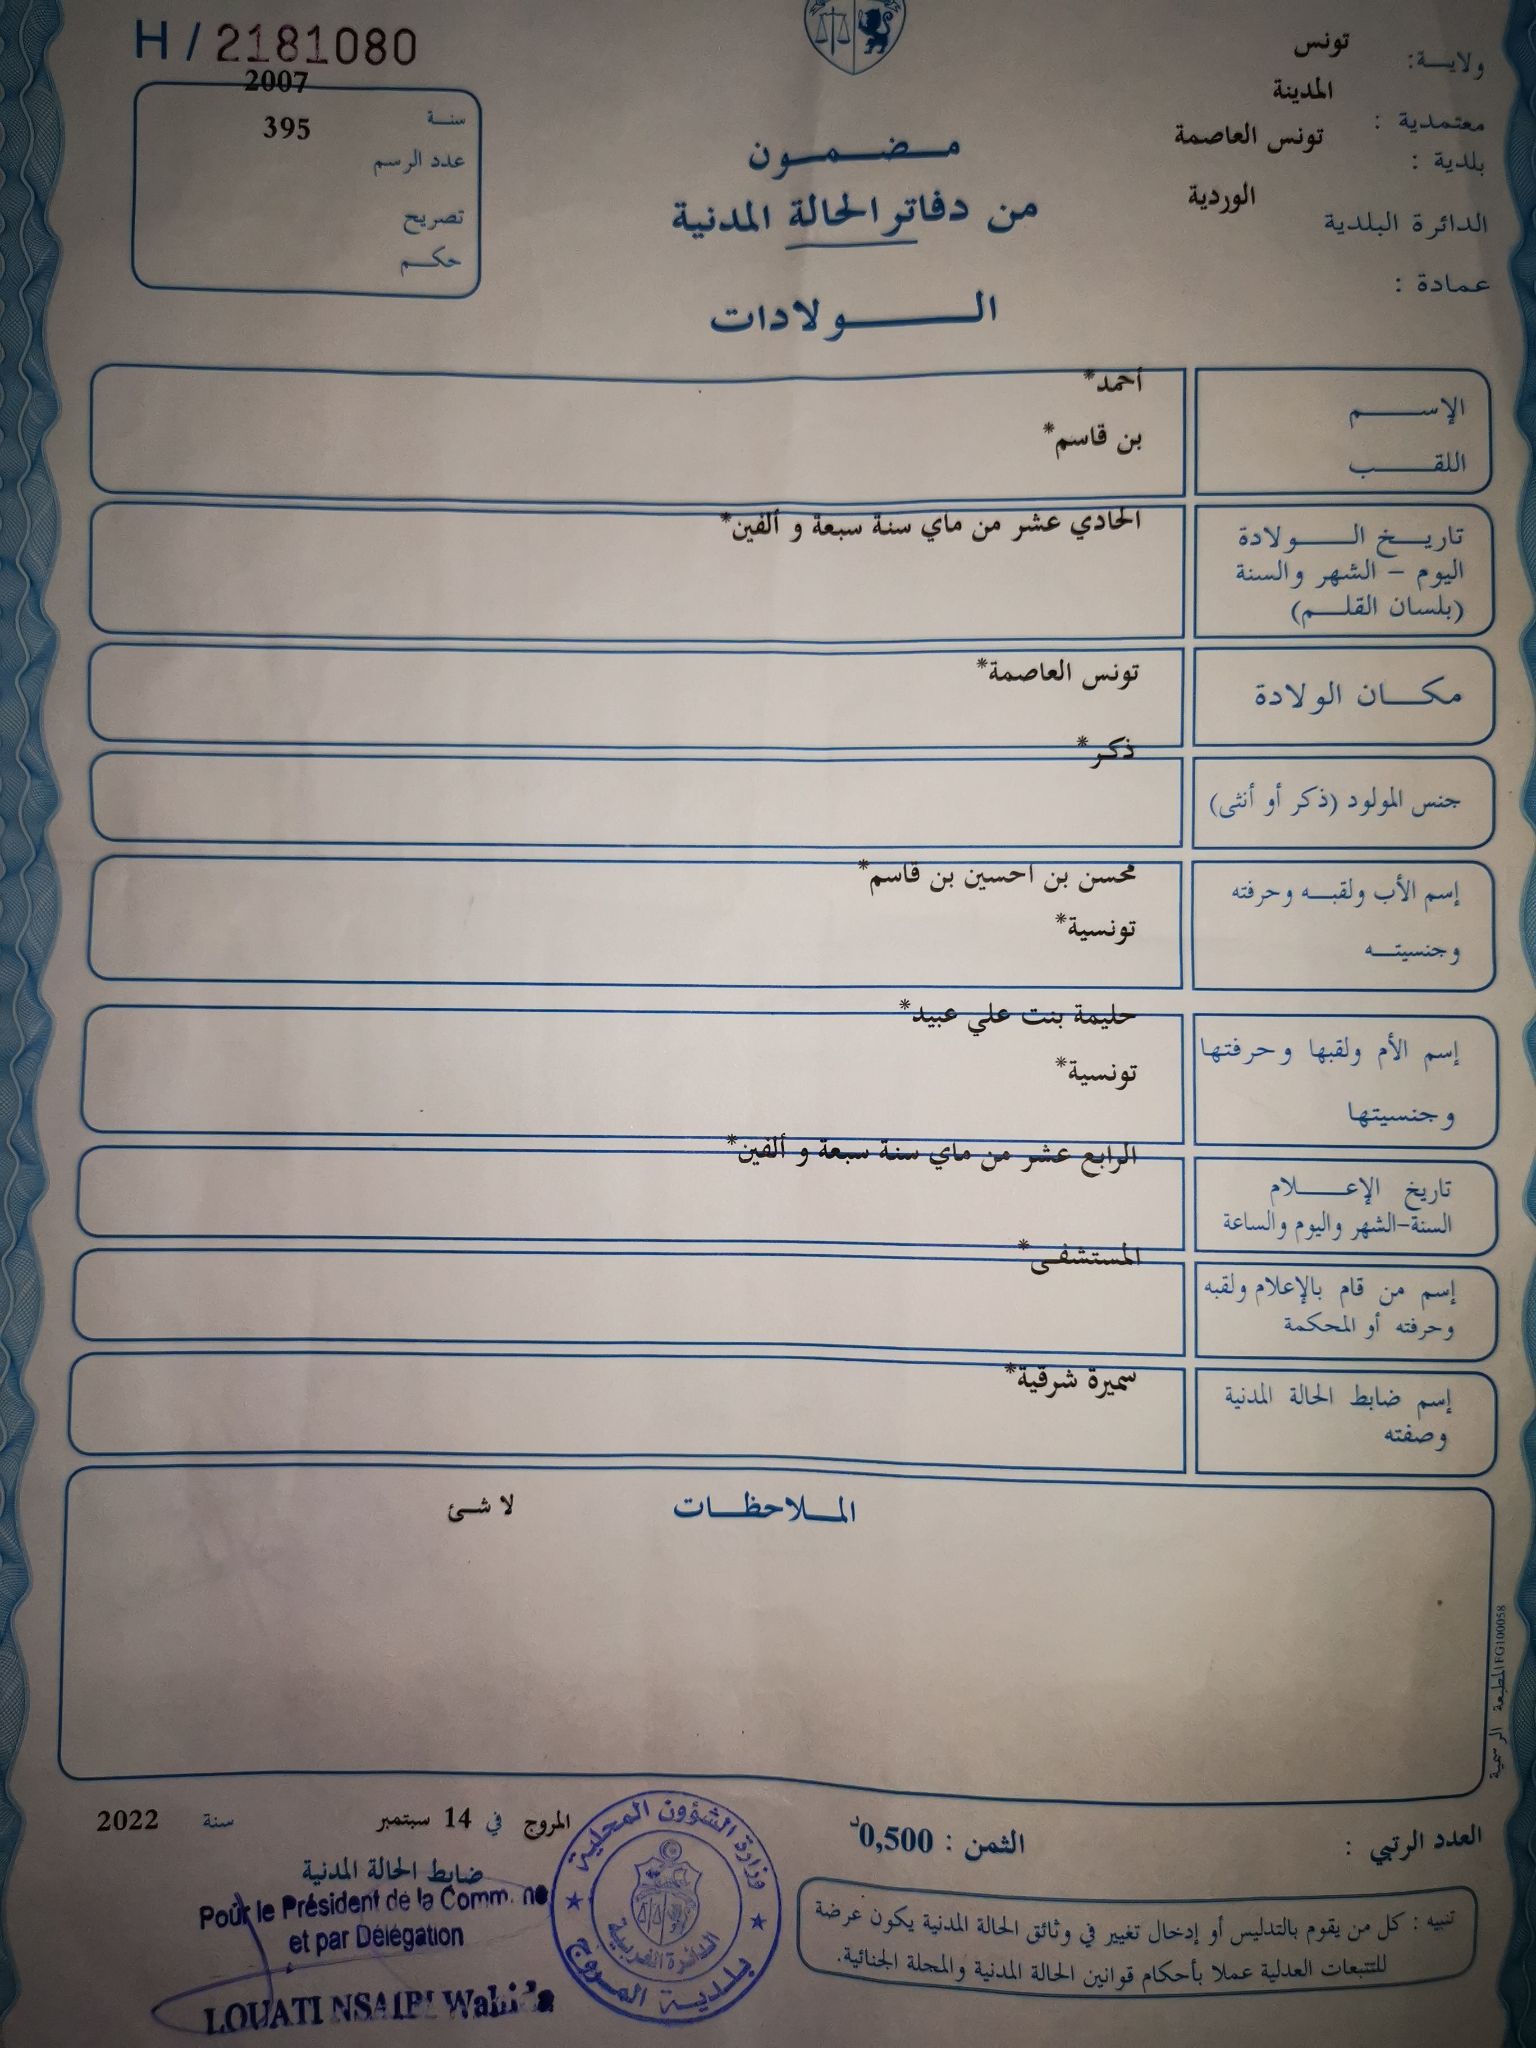 H / 2181080
2007
سنة
395
عدد الرسم
تصريح
حكم
ولاية:
تونس
المدينة
معتمدية :
تونس العاصمة
بلدية :
الوردية
الدائرة البلدية
عمادة :
مضمون
من دفاتر الحالة المدنية
الولادات
الإسم
أحمد*
اللقب
بن قاسم*
تاريخ الولادة
اليوم - الشهر والسنة
(بلسان القلم)
الحادي عشر من ماي سنة سبعة و ألفين*
مكان الولادة
تونس العاصمة*
جنس المولود (ذكر أو أنثى)
ذكر*
إسم الأب ولقبه وحرفته
وجنسيته
محسن بن احسين بن قاسم*
تونسية*
إسم الأم ولقبها وحرفتها
وجنسيتها
حليمة بنت علي عبيد*
تونسية*
تاريخ الإعلام
السنة-الشهر واليوم والساعة
الرابع عشر من ماي سنة سبعة و ألفين*
إسم من قام بالإعلام ولقبه
وحرفته أو المحكمة
المستشفى*
إسم ضابط الحالة المدنية
وصفته
سميرة شرقية*
الملاحظات
لا شئ
المطبعة الرسمية FG100058
العدد الرتبي :
الثمن : 0,500د
المروج في 14 سبتمبر سنة 2022
ضابط الحالة المدنية
Pour le Président de la Commune
et par Délégation
LOUATI NSAIBI Wahida
وزارة الشؤون المحلية
الدائرة الغربية
بلدية المروج
تنبيه : كل من يقوم بالتدليس أو إدخال تغيير في وثائق الحالة المدنية يكون عرضة
للتتبعات العدلية عملا بأحكام قوانين الحالة المدنية والمجلة الجنائية.